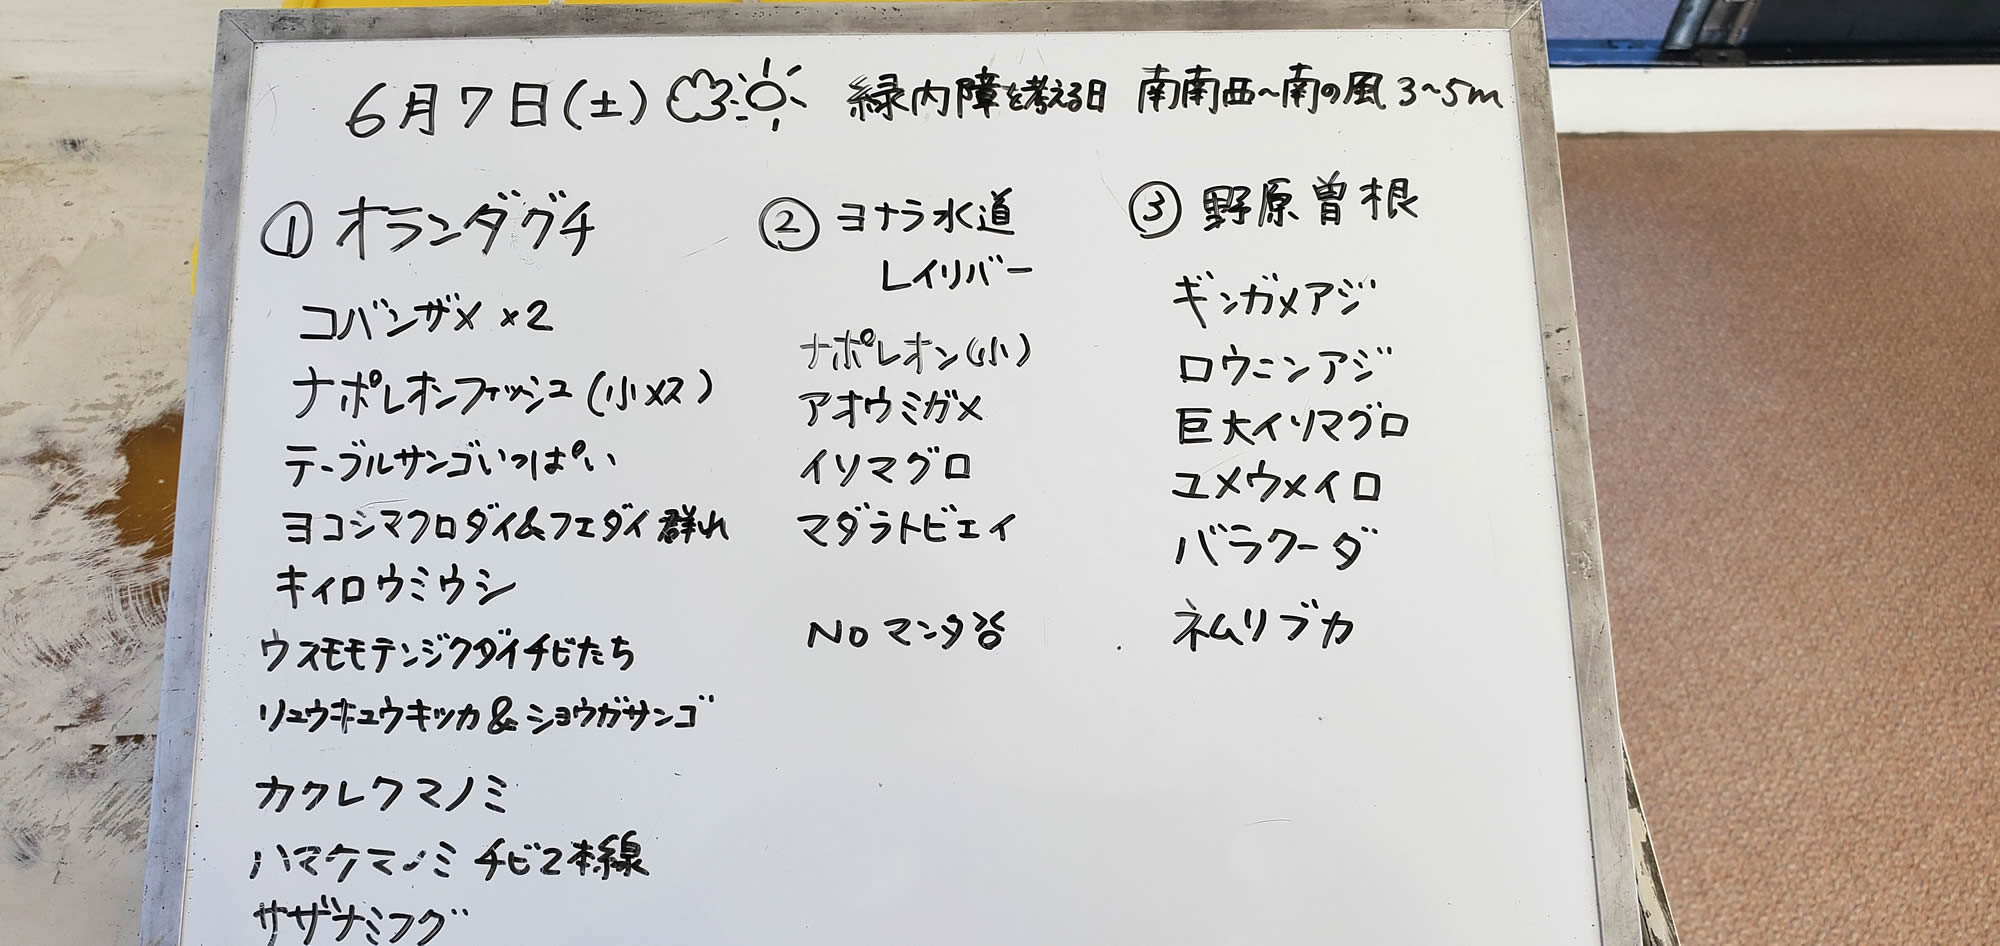 6月7日(土) 緑内障を考える日 南南西~南の風 3~5m
① オランダグチ
コバンザメ ×2
ナポレオンフィッシュ(小メス)
テーブルサンゴいっぱい
ヨコシマクロダイ&フエダイ群れ
キイロウミウシ
ウスモモテンジクダイチビたち
リュウキュウキッカ&ショウガサンゴ
カクレクマノミ
ハマクマノミ チビ2本線
サザナミフグ
② ヨナラ水道
レイリバー
ナポレオン(小)
アオウミガメ
イソマグロ
マダラトビエイ
No マンタ
③ 野原曽根
ギンガメアジ
ロウニンアジ
巨大イソマグロ
ユメウメイロ
バラクーダ
ネムリブカ